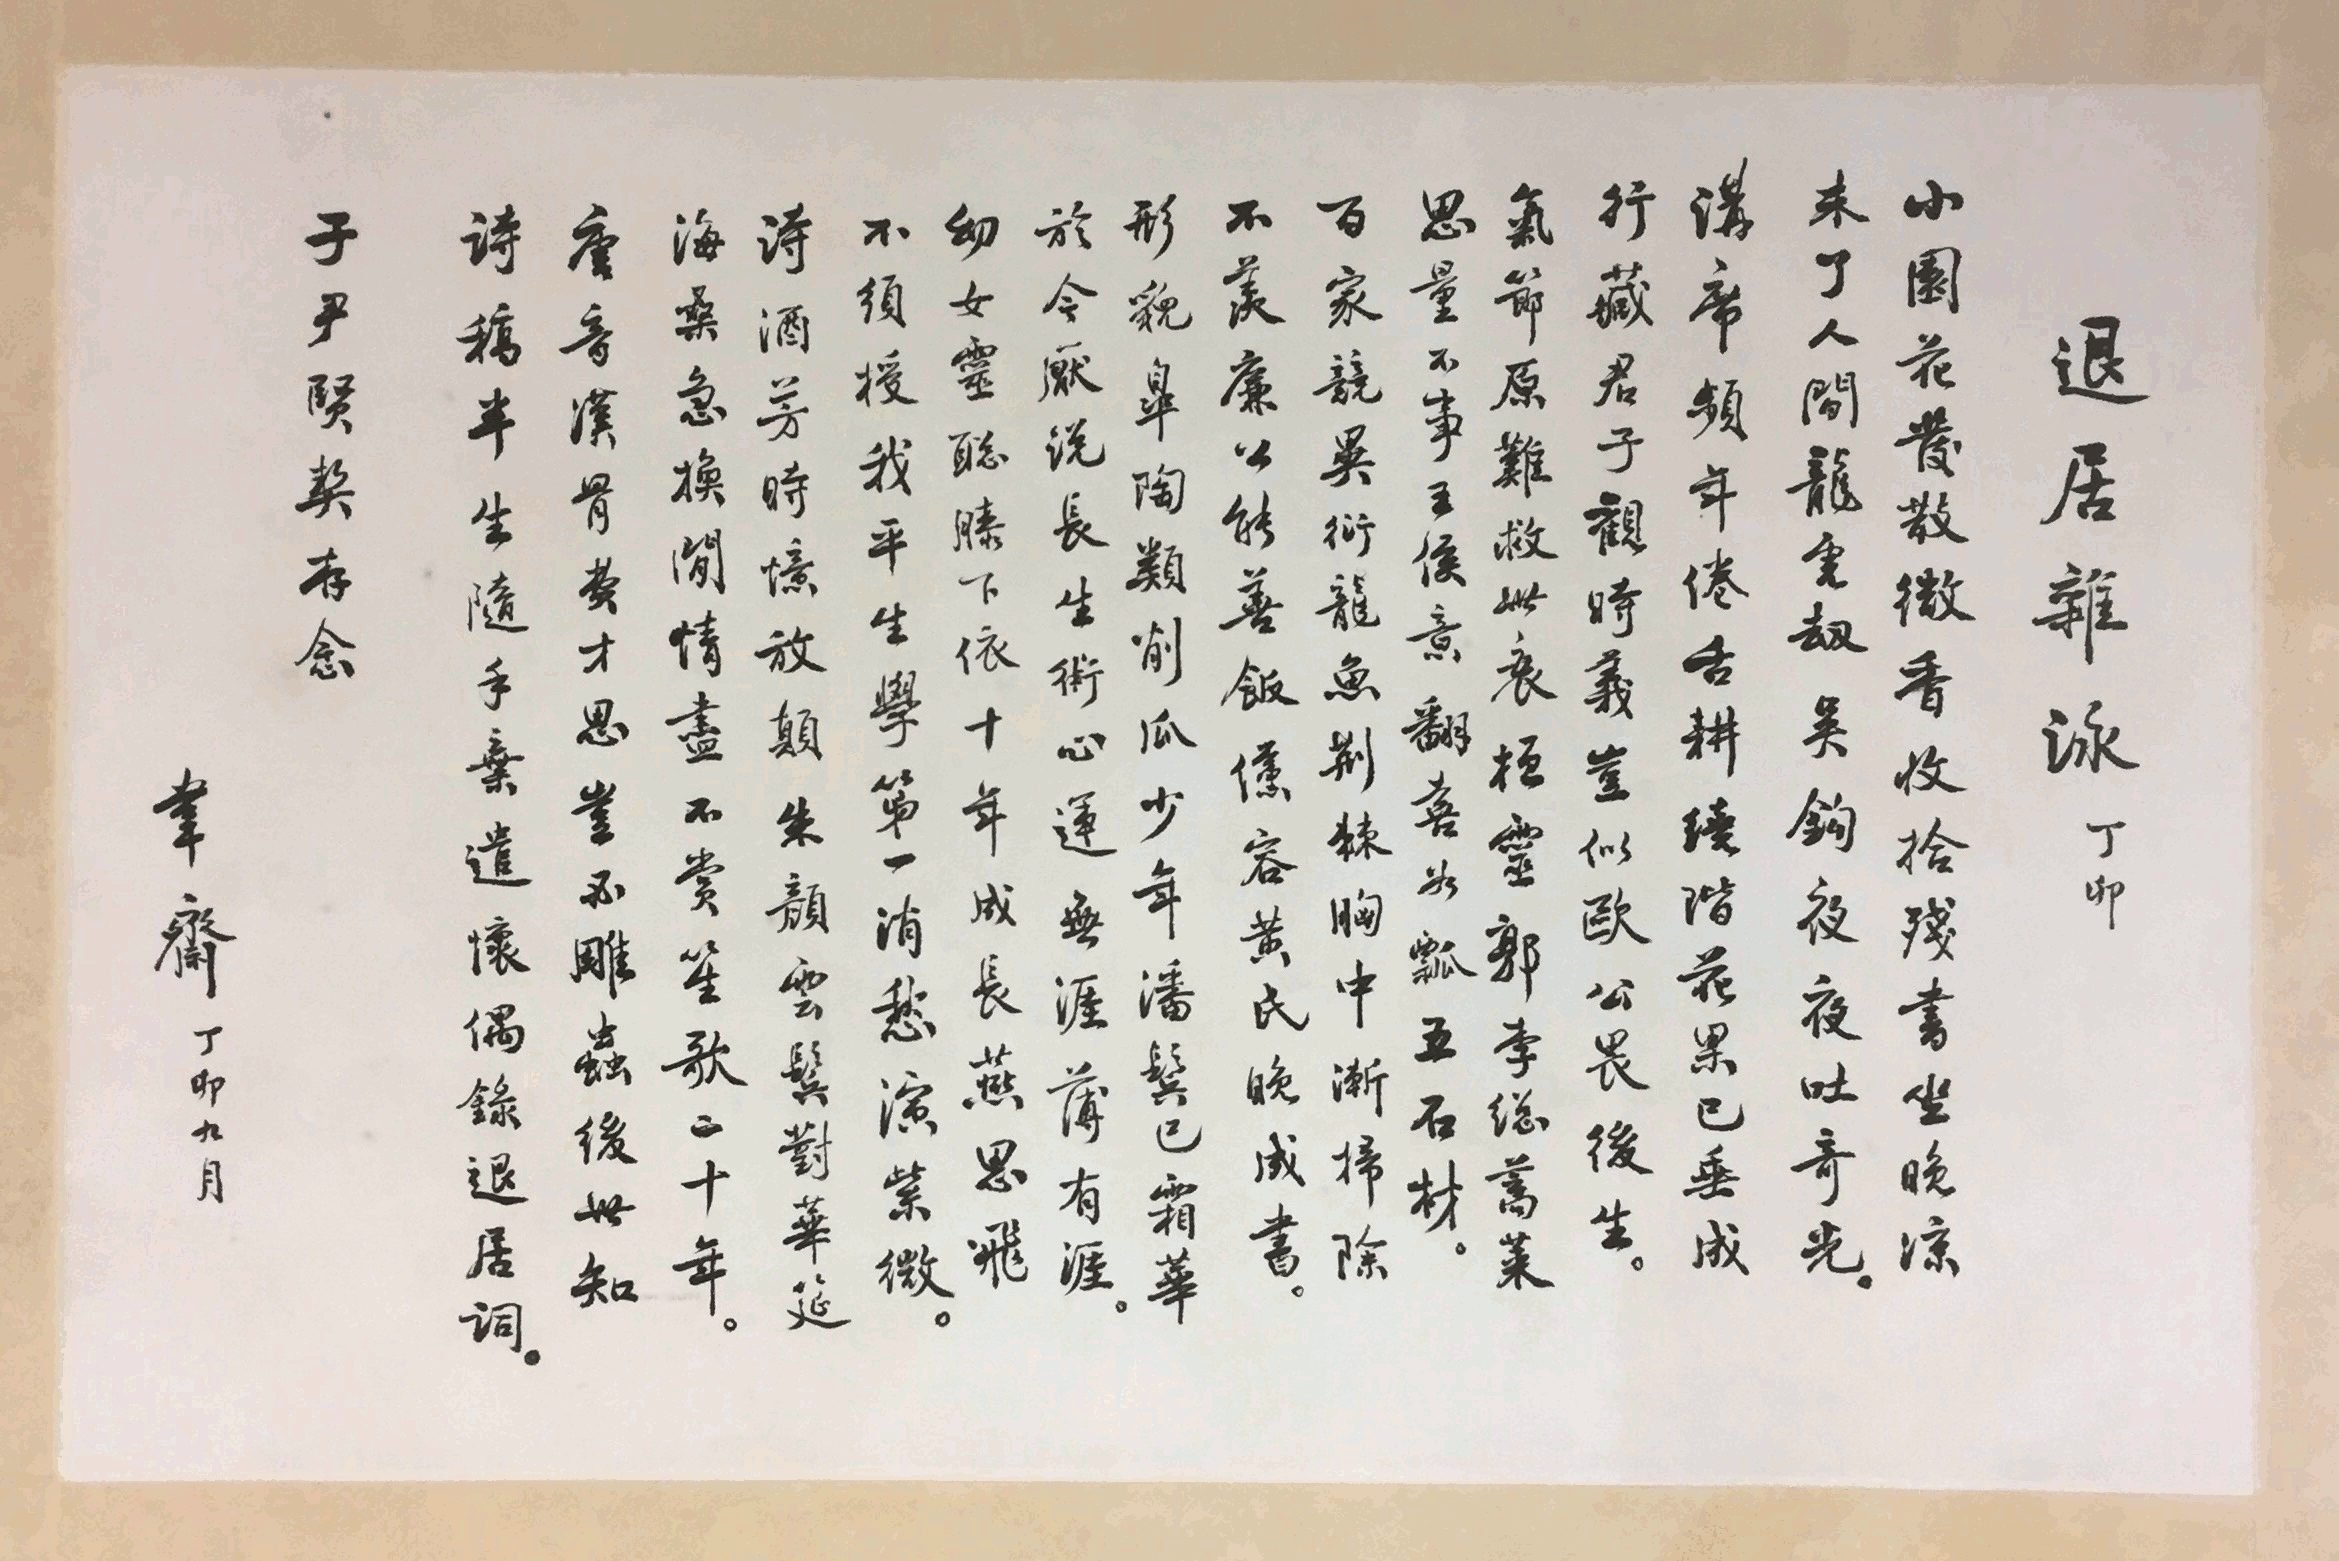 退居雜詠 丁卯
小園花發散微香收拾殘書坐晚涼
未了人間龍虎劫吳鉤夜夜吐奇光。
講席頻年倦舌耕繞階花果已垂成
行藏君子觀時義豈似歐公畏後生。
氣節原難救世衰桓靈郭李總蒿萊
思量不事王侯意翻喜如瓢五石材。
百家競異衍龍魚荆棘胸中漸掃除
不羨廉公能善飯儻容黃氏晚成書。
形貌皐陶類削瓜少年潘鬢已霜華
於今厭說長生術心運無涯薄有涯。
幼女靈聪膝下依十年成長燕思飛
不須授我平生學第一消愁演紫微。
詩酒芳時憶放顛朱顏雲鬢對華筵
海桑急換閒情盡不賞笙歌二十年。
唐音漢骨費才思豈必雕蟲後世知
詩稿半生隨手棄遣懷偶錄退居詞。
子尹賢契存念
韋齋 丁卯九月